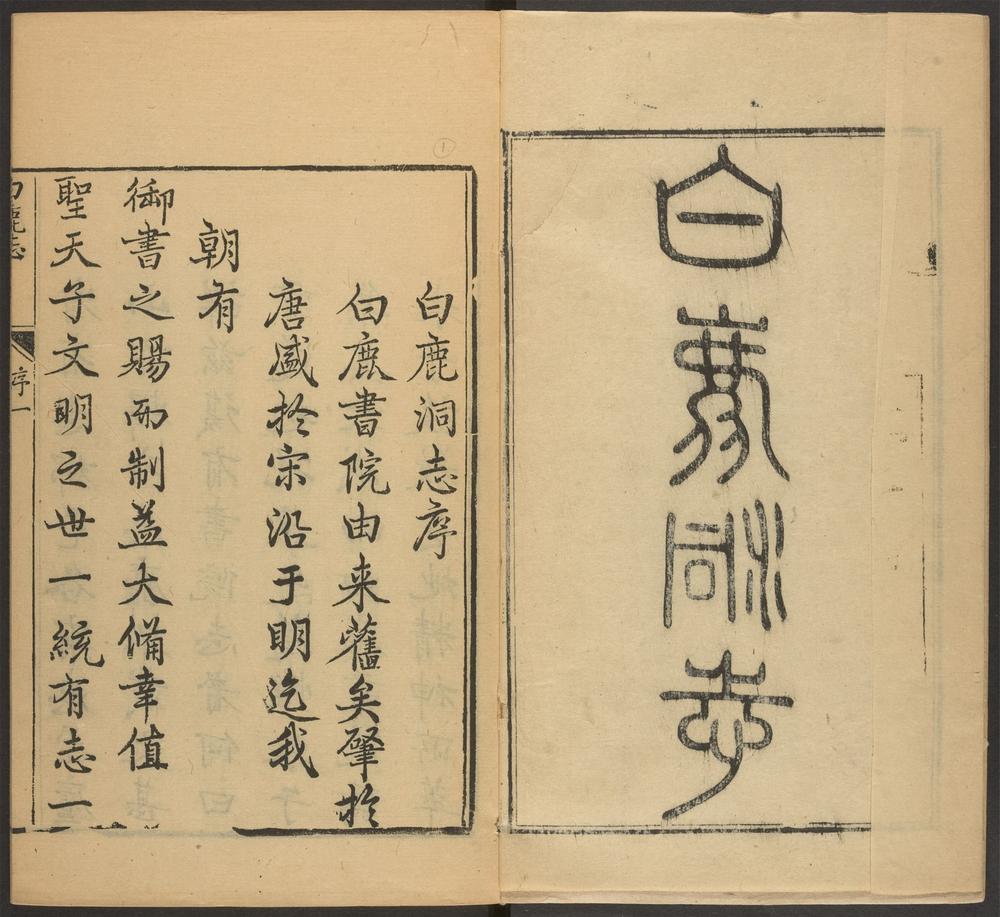 白鹿洞志
白鹿洞志序
白鹿書院由来舊矣肇扵
唐盛扵宋沿于明迄我
朝有
御書之賜而制益大備幸值
聖天子文明之世一統有志一
白鹿志
序一
①